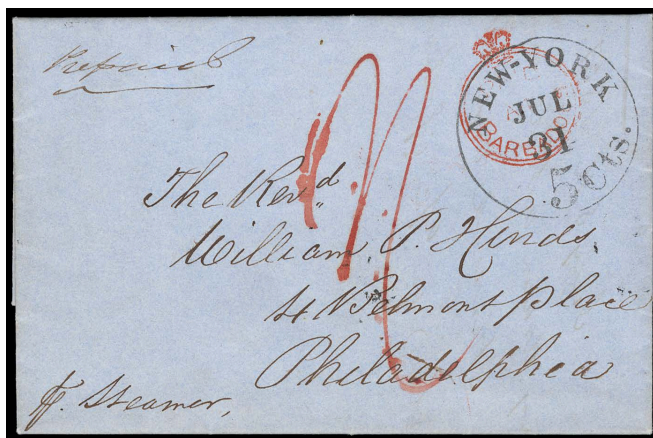 Prepaid
NEW-YORK
JUL
31
5 cts.
BARBADO
The Revd
William P. Hinds
4 N Belmont place
Philadelphia
Steamer,